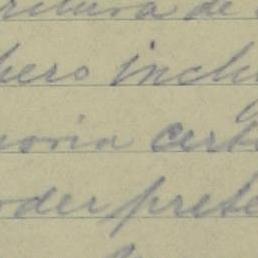 ritura de
bero inclu
noria cert
oder prese